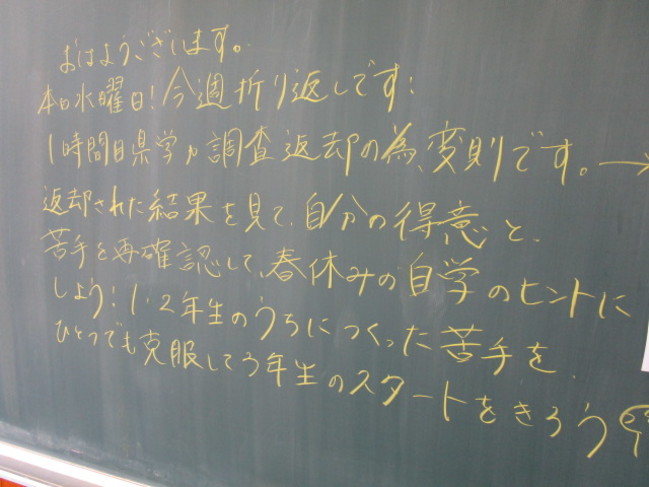 おはようございます。
本日水曜日!今週折り返しです!
1時間目県学力調査返却の為、変則です。→
返却された結果を見て、自分の得意と、
苦手を再確認して、春休みの自学のヒントに
しよう!1・2年生のうちにつくった苦手を
ひとつでも克服して3年生のスタートをきろう